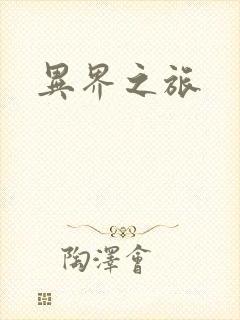 異界之旅
陶澤會